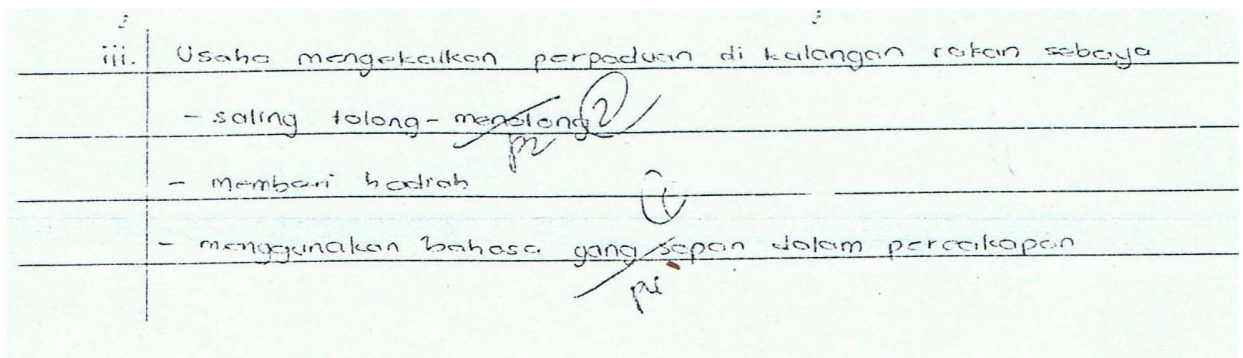 iii. Usaha mengekalkan perpaduan di kalangan rakan sebaya
- saling tolong-menolong 2
p2
- memberi hadiah
- menggunakan bahasa yang sopan dalam percakapan